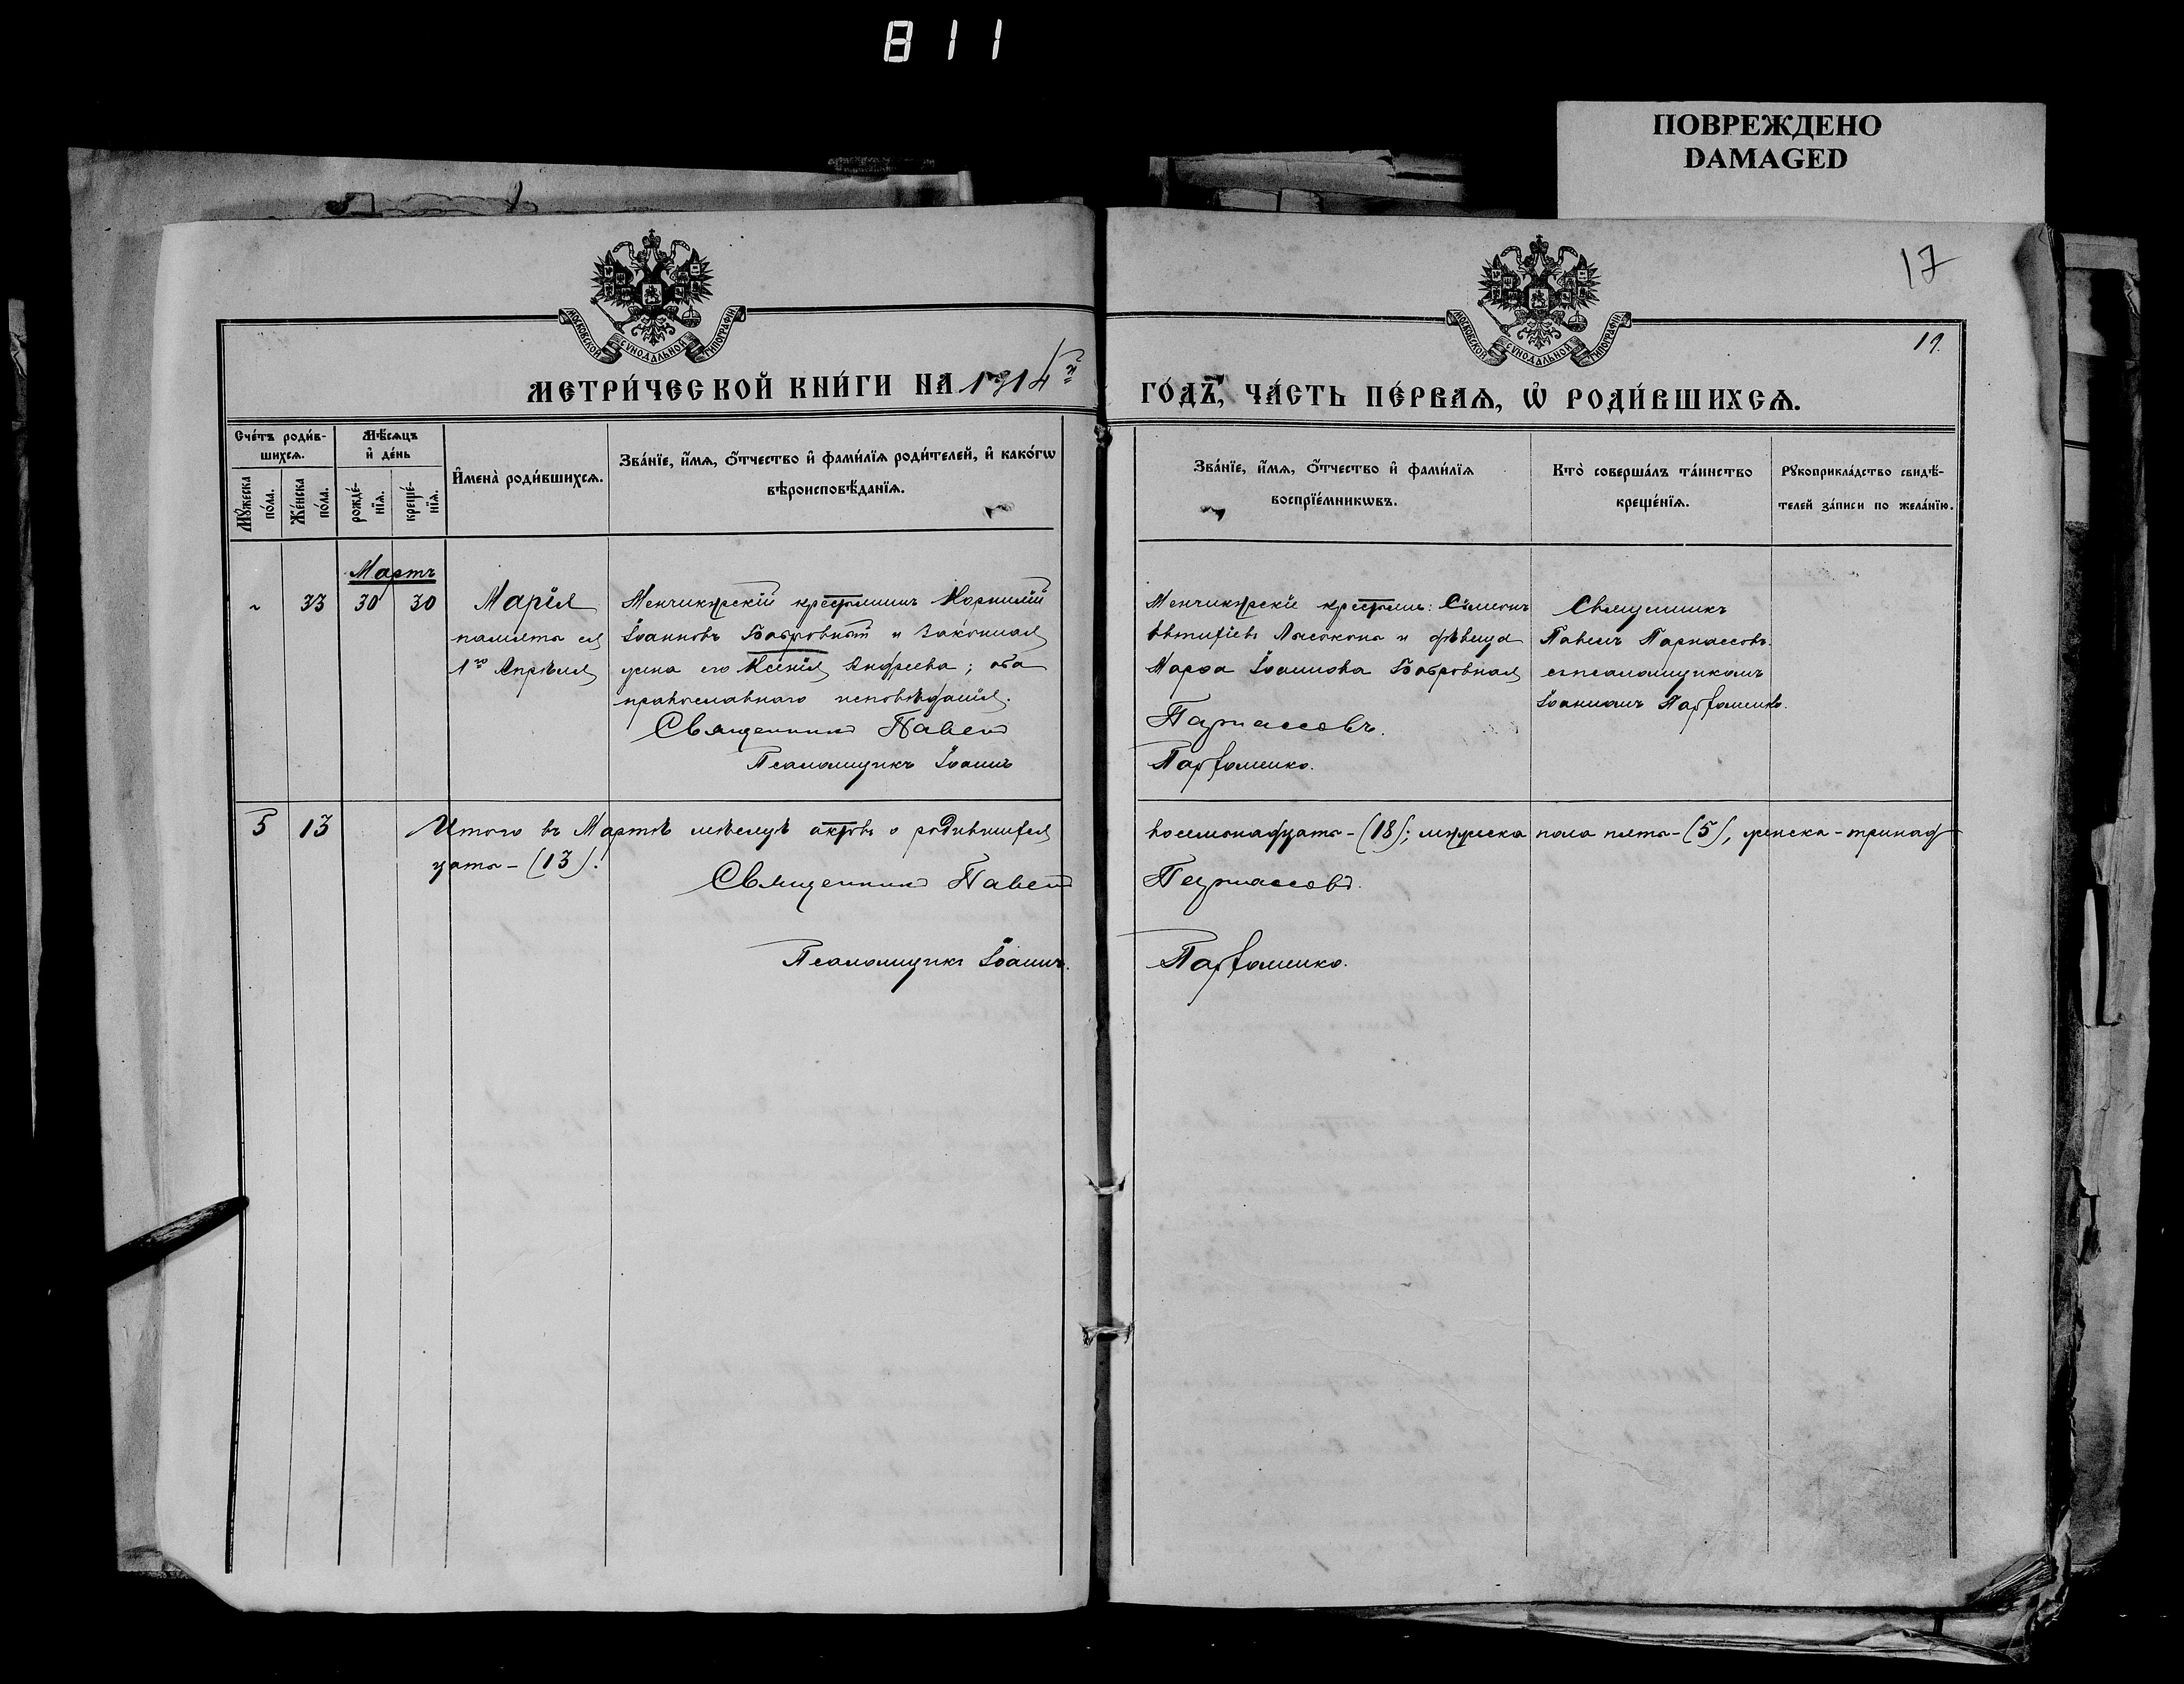 811
ПОВРЕЖДЕНО
DAMAGED
17
19.
МОСКОВСКОЙ СѴНОДАЛЬНОЙ ТИПОГРАФІИ
МОСКОВСКОЙ СѴНОДАЛЬНОЙ ТИПОГРАФІИ
МЕТРИ́ЧЕСКОЙ КНИ́ГИ НА 1914й
ГО́ДЪ, ЧА́СТЬ ПЕ́РВАѦ, Ѡ҆ РОДИ́ВШИХСѦ.
Сче́тъ роди́в-
шихсѧ.
Мѣ́сѧцъ
и҆ де́нь
Мꙋ́жеска
по́ла.
Же́нска
по́ла.
рожде́-
нїѧ.
креще́-
нїѧ.
И҆мена̀ роди́вшихсѧ.
Зва́нїе, и҆́мѧ, ѻ҆́тчество и҆ фами́лїѧ роди́телей, и҆ како́гѡ
вѣроисповѣ́данїѧ.
Зва́нїе, и҆́мѧ, ѻ҆́тчество и҆ фами́лїѧ
воспрїе́мникѡвъ.
Кто̀ соверша́лъ та́инство
креще́нїѧ.
Рꙋкоприкла́дство свидѣ́-
телей за́писи по жела́нїю.
Мартъ
33 30 30
Марія
память ея
1го Апрѣля
Менчикурскій крестьянинъ Корнилій
Іоанновъ Бабровный и законная
жена его Ксенія Андреева; оба
православнаго исповѣданія.
Священникъ Павелъ
Псаломщикъ Іоаннъ
Менчикурскіе крестьян: Симеонъ
Евтихіевъ Лысоконь и дѣвица
Марѳа Іоаннова Бабровная
Парнассовъ.
Парфоменко.
Священникъ
Павелъ Парнассовъ
съ псаломщикомъ
Іоанномъ Парфоменко.
5 13
Итого въ Мартѣ мѣсяцѣ актовъ о родившихся
восемнадцать - (18); мужеска пола пять - (5), женска - тринад
цать - (13).
Священникъ Павелъ
Парнассовъ.
Псаломщикъ Іоаннъ
Парфоменко.